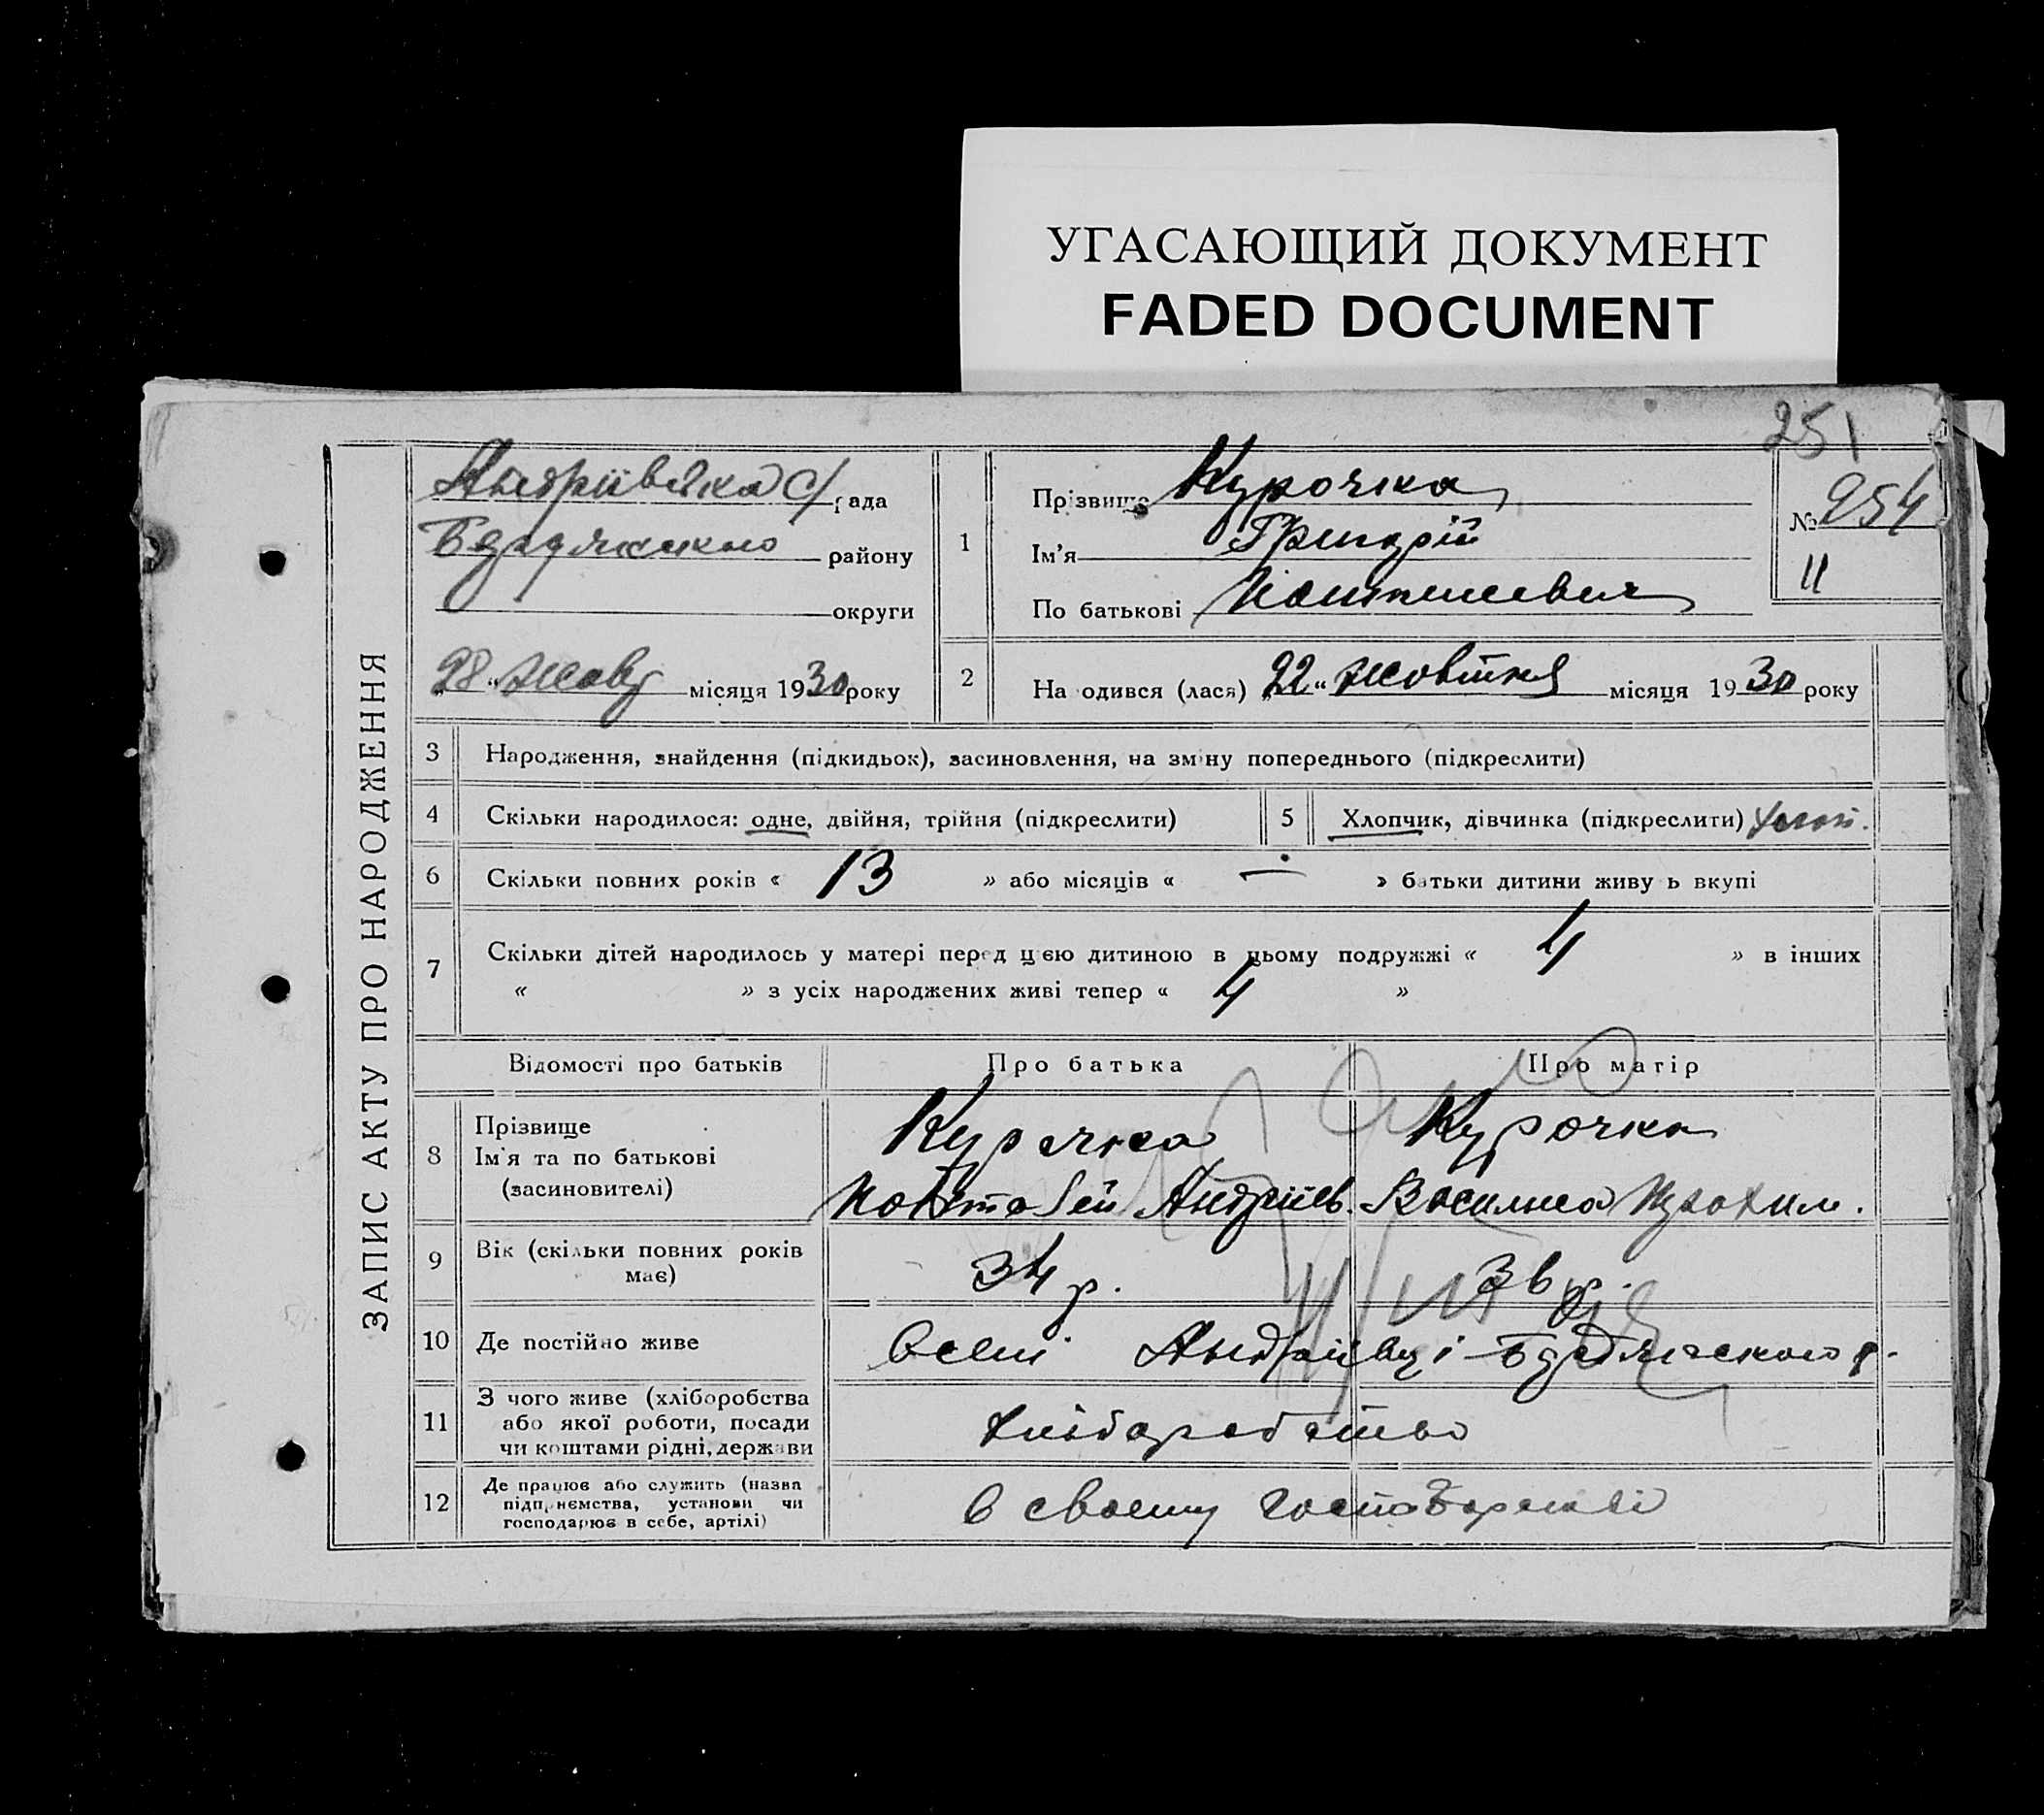 УГАСАЮЩИЙ ДОКУМЕНТ
FADED DOCUMENT
251
ЗАПИС АКТУ ПРО НАРОДЖЕННЯ
Андріївська с/рада
району
округи
"28" Жовт місяця 1930 року
1
Прізвище Курочка
Ім'я Григорій
По батькові
№ 254
11
2 Народився (лася) "22" жовтня місяця 1930 року
3 Народження, знайдення (підкидьок), засиновлення, на зміну попереднього (підкреслити)
4 Скільки народилося: одне, двійня, трійня (підкреслити) 5 Хлопчик, дівчинка (підкреслити)
6 Скільки повних років « 13 » або місяців « — » батьки дитини живуть вкупі
7 Скільки дітей народилось у матері перед цією дитиною в цьому подружжі « 4 » в інших
« » з усіх народжених живі тепер « 4 »
Відомості про батьків Про батька Про матір
8 Прізвище
Ім'я та по батькові
(засиновителі)
Курочка Курочка
Андріїв. Василиса
9 Вік (скільки повних років
має)
34 р. 36 р.
10 Де постійно живе
В селі Андріївці р.
11 З чого живе (хліборобства
або якої роботи, посади
чи коштами рідні, держави
Хліборобство
12 Де працює або служить (назва
підприємства, установи чи
господарює в себе, артілі)
в своему господарстві